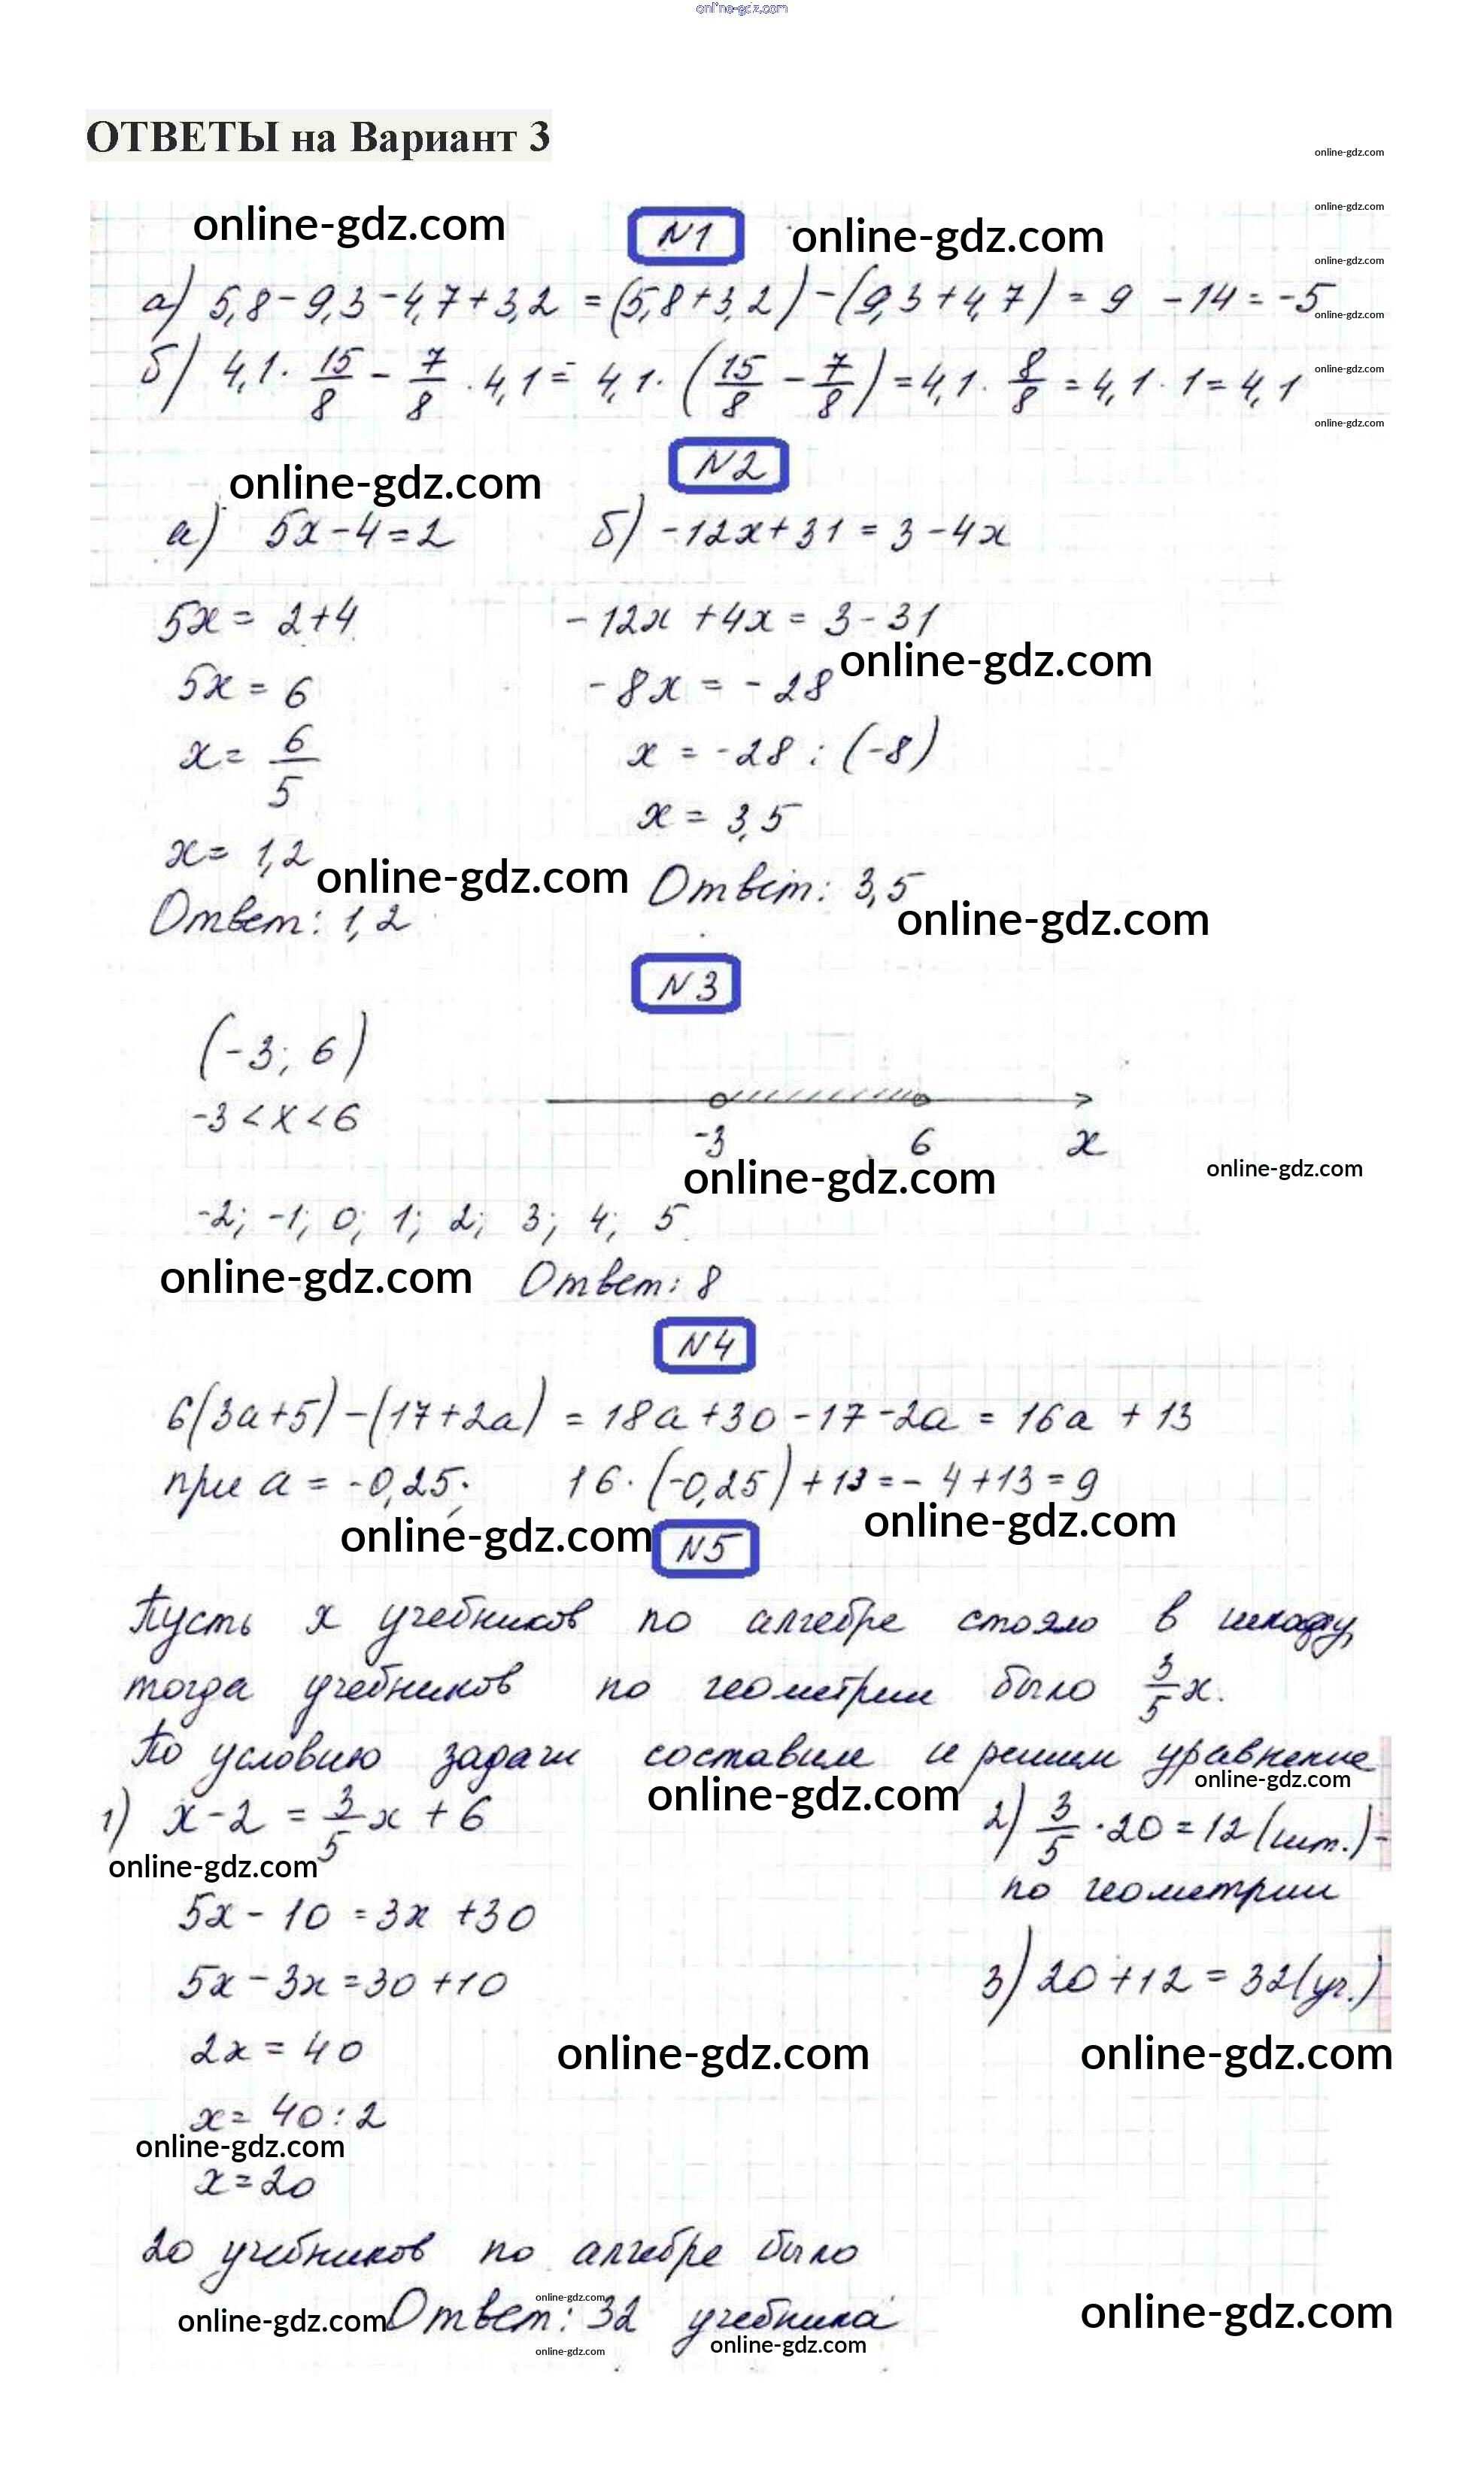 online-gdz.com
ОТВЕТЫ на Вариант 3
online-gdz.com
online-gdz.com
online-gdz.com N1 online-gdz.com
online-gdz.com
а) 5,8 - 9,3 - 4,7 + 3,2 = (5,8 + 3,2) - (9,3 + 4,7) = 9 - 14 = -5
online-gdz.com
б) 4,1 · 15/8 - 7/8 · 4,1 = 4,1 · (15/8 - 7/8) = 4,1 · 8/8 = 4,1 · 1 = 4,1
online-gdz.com
online-gdz.com
N2
online-gdz.com
а) 5x - 4 = 2 б) -12x + 31 = 3 - 4x
5x = 2 + 4 -12x + 4x = 3 - 31
online-gdz.com
5x = 6 -8x = -28
x = 6/5 x = -28 : (-8)
x = 3,5
x = 1,2
online-gdz.com Ответ: 3,5
Ответ: 1,2 online-gdz.com
N3
(-3; 6)
-3 < x < 6
-3 6 x
online-gdz.com online-gdz.com
-2; -1; 0; 1; 2; 3; 4; 5
online-gdz.com Ответ: 8
N4
6(3a+5) - (17+2a) = 18a + 30 - 17 - 2a = 16a + 13
при a = -0,25; 16 · (-0,25) + 13 = -4 + 13 = 9
online-gdz.com N5 online-gdz.com
Пусть x учебников по алгебре стояло в шкафу,
тогда учебников по геометрии было 3/5 x.
По условию задачи составим и решим уравнение
online-gdz.com online-gdz.com
1) x - 2 = 3/5 x + 6 2) 3/5 · 20 = 12 (шт.) -
online-gdz.com по геометрии
5x - 10 = 3x + 30
5x - 3x = 30 + 10 3) 20 + 12 = 32 (уч.)
2x = 40 online-gdz.com online-gdz.com
x = 40 : 2
online-gdz.com
x = 20
20 учебников по алгебре было
online-gdz.com
online-gdz.com Ответ: 32 учебника online-gdz.com
online-gdz.com online-gdz.com